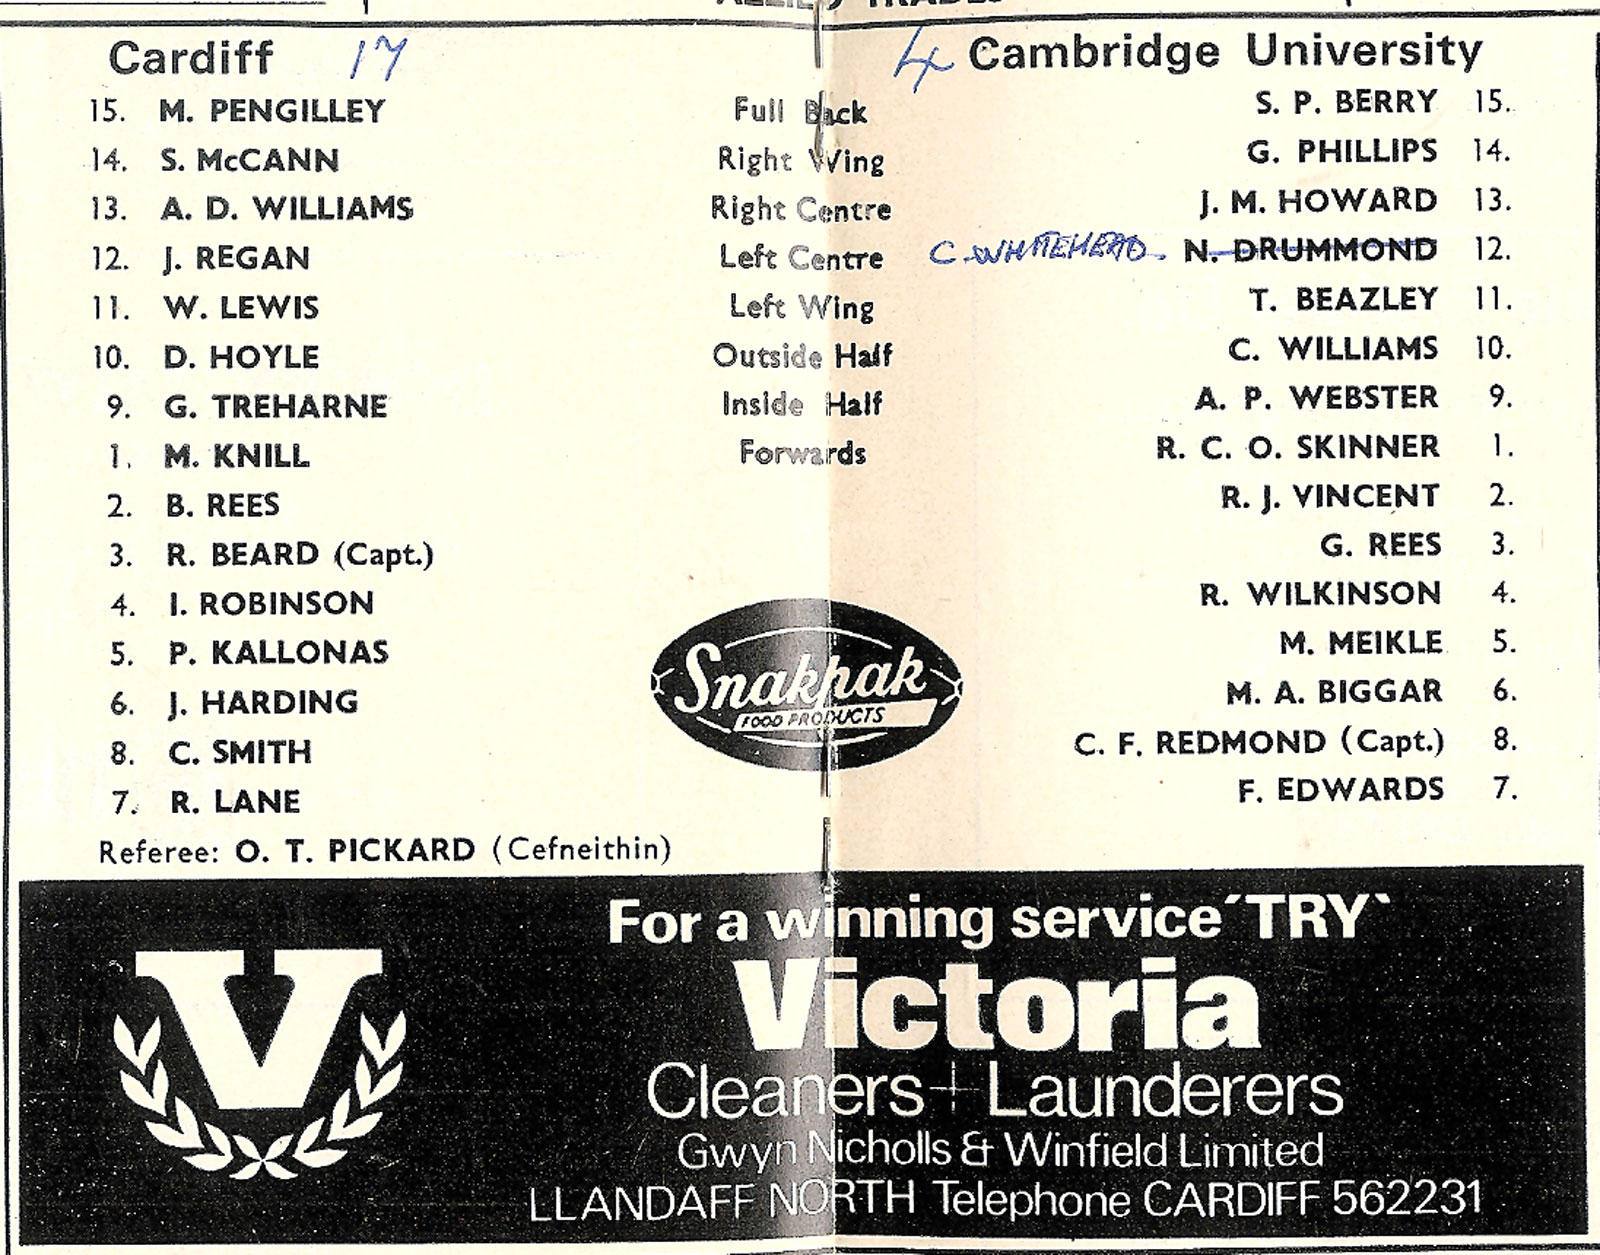 Cardiff 17 4 Cambridge University
15. M. PENGILLEY Full Back S. P. BERRY 15.
14. S. McCANN Right Wing G. PHILLIPS 14.
13. A. D. WILLIAMS Right Centre J. M. HOWARD 13.
12. J. REGAN Left Centre C. WHITEHEAD. N. DRUMMOND 12.
11. W. LEWIS Left Wing T. BEAZLEY 11.
10. D. HOYLE Outside Half C. WILLIAMS 10.
9. G. TREHARNE Inside Half A. P. WEBSTER 9.
1. M. KNILL Forwards R. C. O. SKINNER 1.
2. B. REES R. J. VINCENT 2.
3. R. BEARD (Capt.) G. REES 3.
4. I. ROBINSON R. WILKINSON 4.
5. P. KALLONAS M. MEIKLE 5.
6. J. HARDING M. A. BIGGAR 6.
8. C. SMITH C. F. REDMOND (Capt.) 8.
7. R. LANE F. EDWARDS 7.
Snakpak
FOOD PRODUCTS
Referee: O. T. PICKARD (Cefneithin)
For a winning service ´TRY`
V
Victoria
Cleaners + Launderers
Gwyn Nicholls & Winfield Limited
LLANDAFF NORTH Telephone CARDIFF 562231